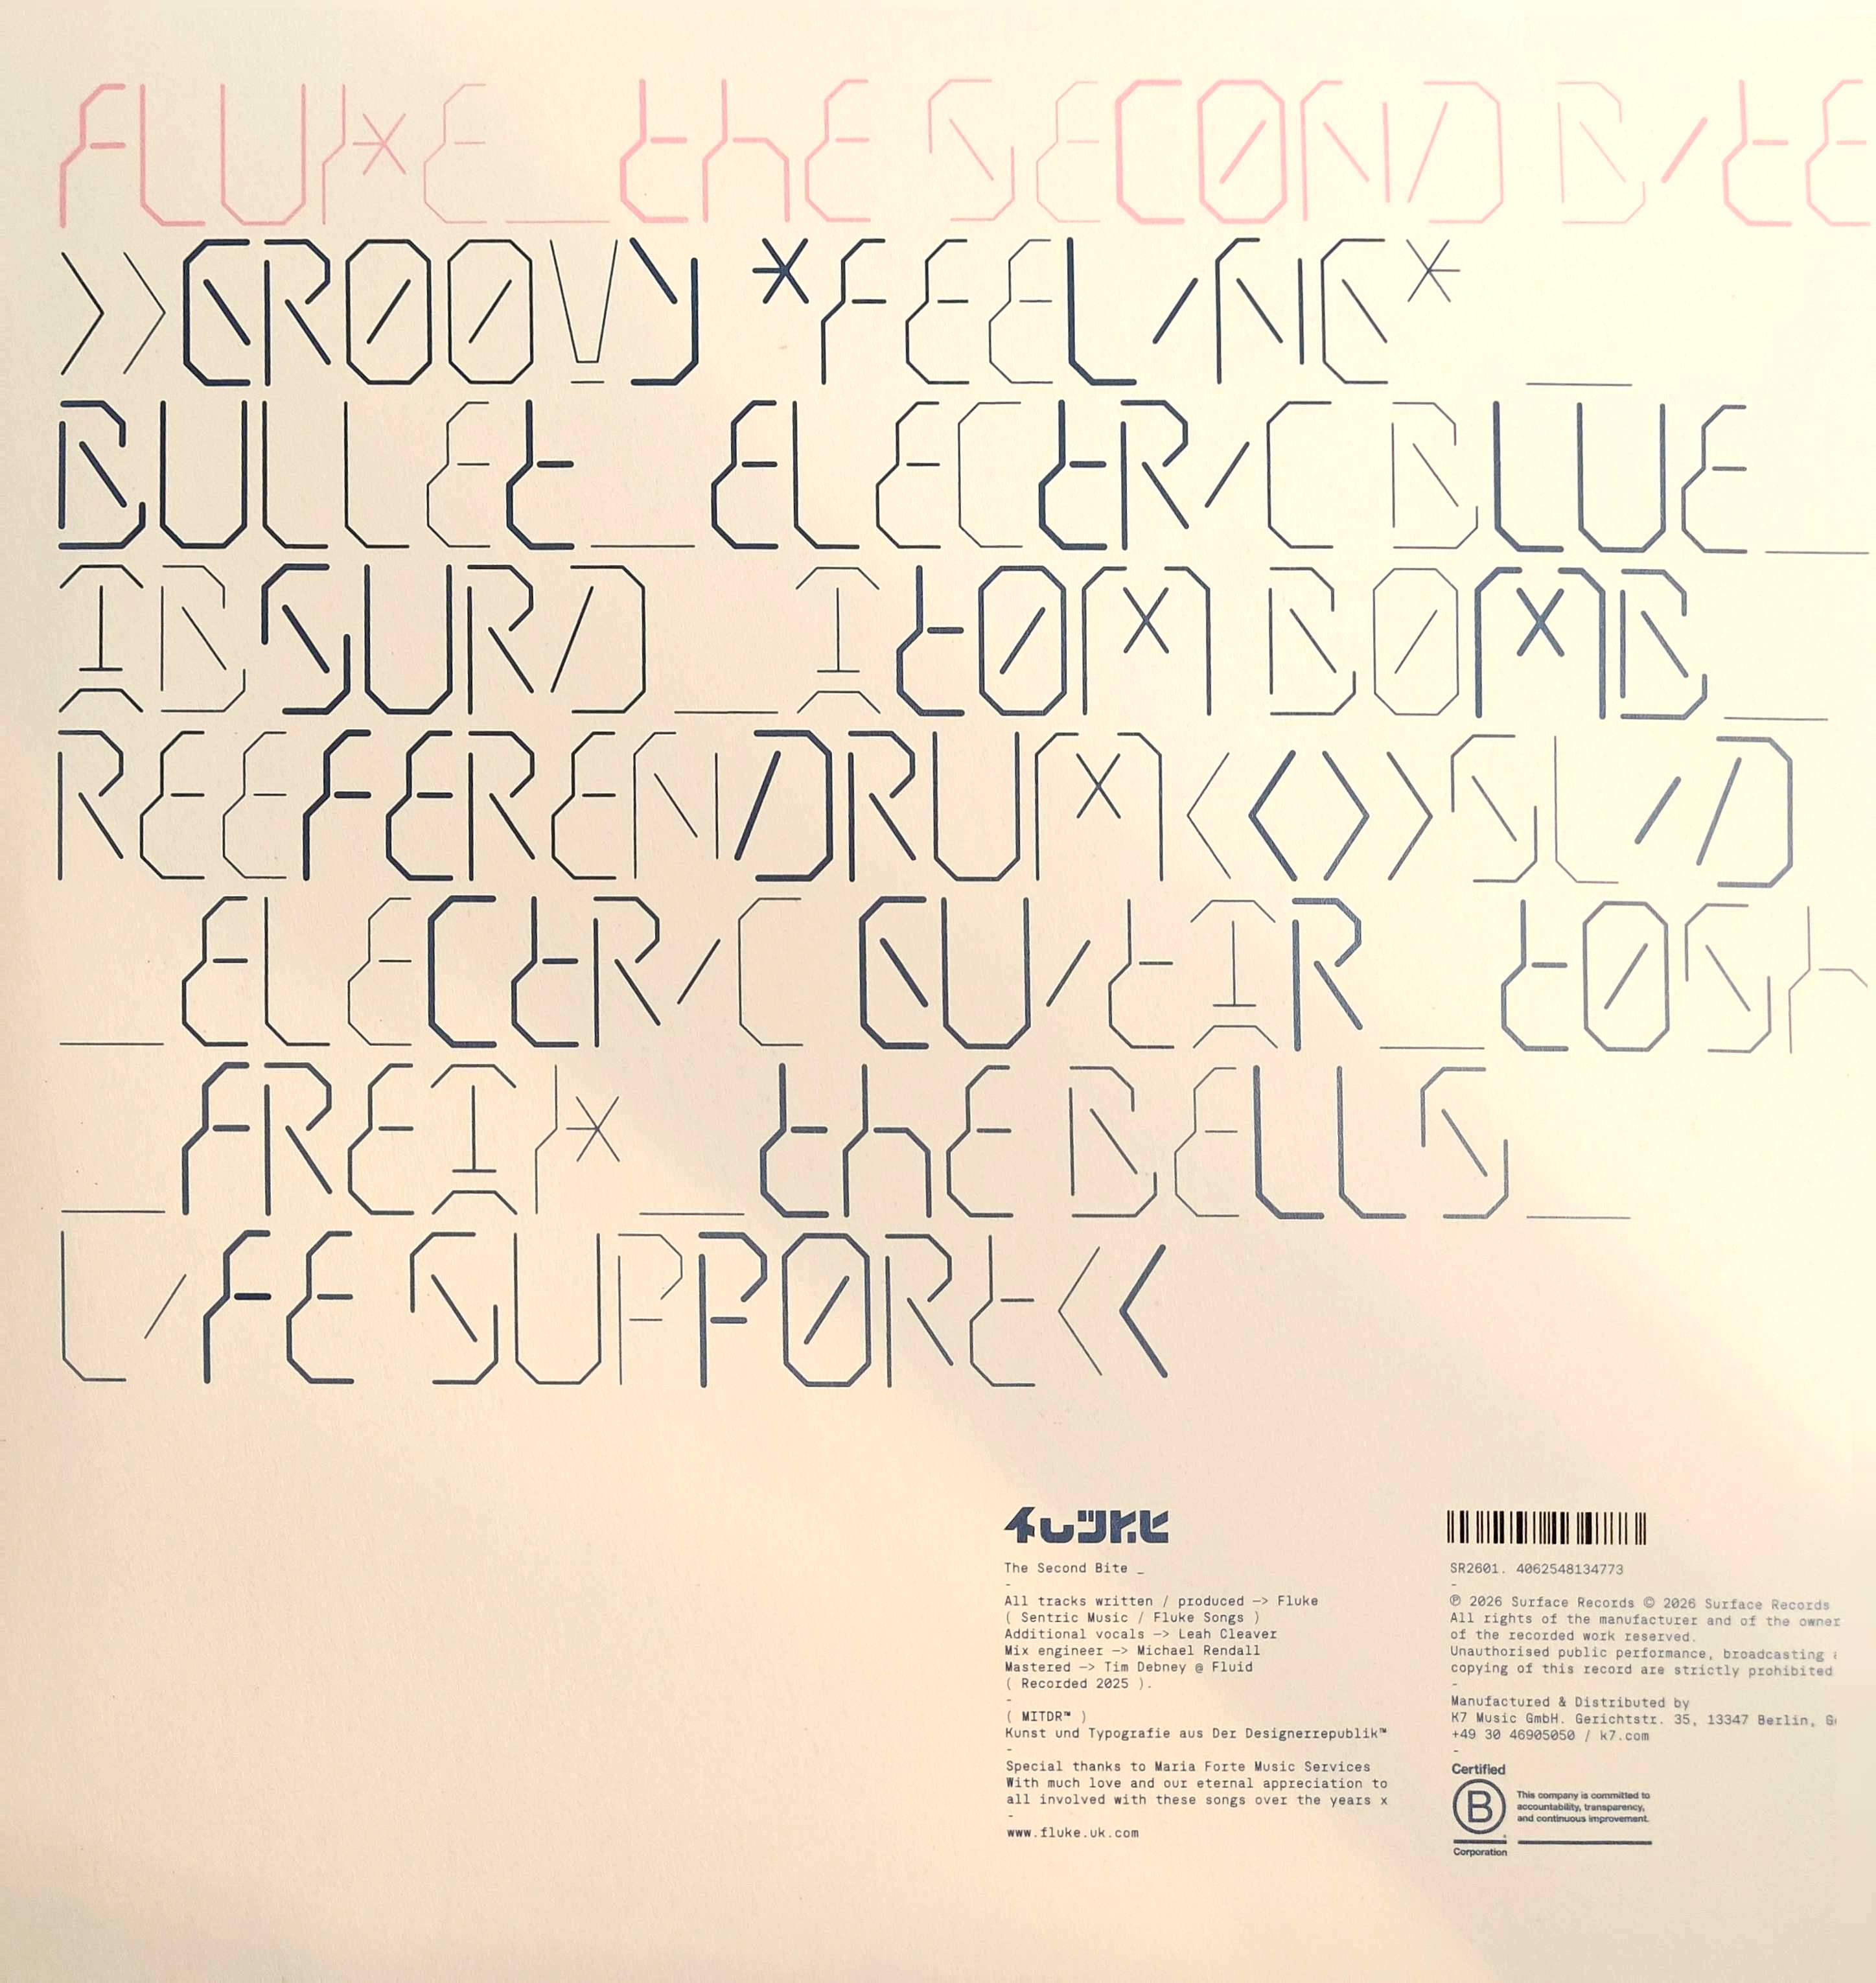 FLUKE_thE SECOND BITE
>>GROOVY *FEELING* _
BULLEt_ELECtRIC BLUE_
ABSURD_AtOM BOMB_
REEFERENDRUM<<>>SLID
_ELECtRIC GUItAR_tOSh
_FREAK_thE BELLS_
LIFE SUPPORt<<
FLUKE
The Second Bite _
-
All tracks written / produced —> Fluke
( Sentric Music / Fluke Songs )
Additional vocals —> Leah Cleaver
Mix engineer —> Michael Rendall
Mastered —> Tim Debney @ Fluid
( Recorded 2025 ).
-
( MITDR™ )
Kunst und Typografie aus Der Designerrepublik™
-
Special thanks to Maria Forte Music Services
With much love and our eternal appreciation to
all involved with these songs over the years x
-
www.fluke.uk.com
SR2601. 4062548134773
-
℗ 2026 Surface Records © 2026 Surface Records
All rights of the manufacturer and of the owner
of the recorded work reserved.
Unauthorised public performance, broadcasting
copying of this record are strictly prohibited
-
Manufactured & Distributed by
K7 Music GmbH. Gerichtstr. 35, 13347 Berlin,
+49 30 46905050 / k7.com
-
Certified
B
Corporation
This company is committed to
accountability, transparency,
and continuous improvement.